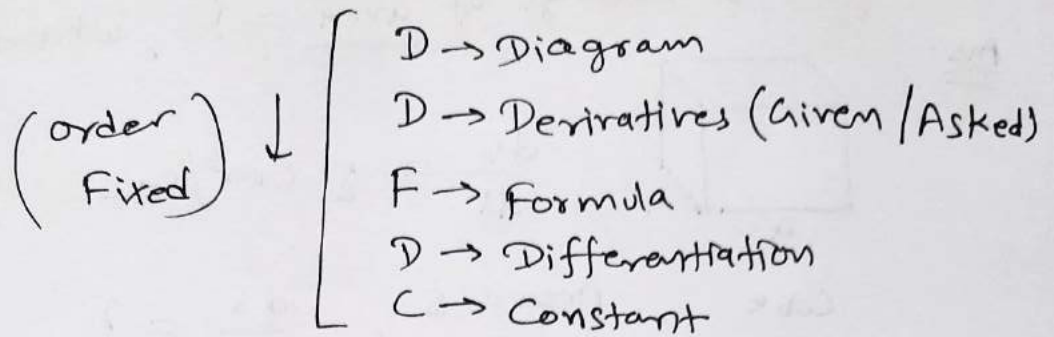 (order Fixed) ↓
D → Diagram
D → Derivatives (Given / Asked)
F → Formula
D → Differentiation
C → Constant